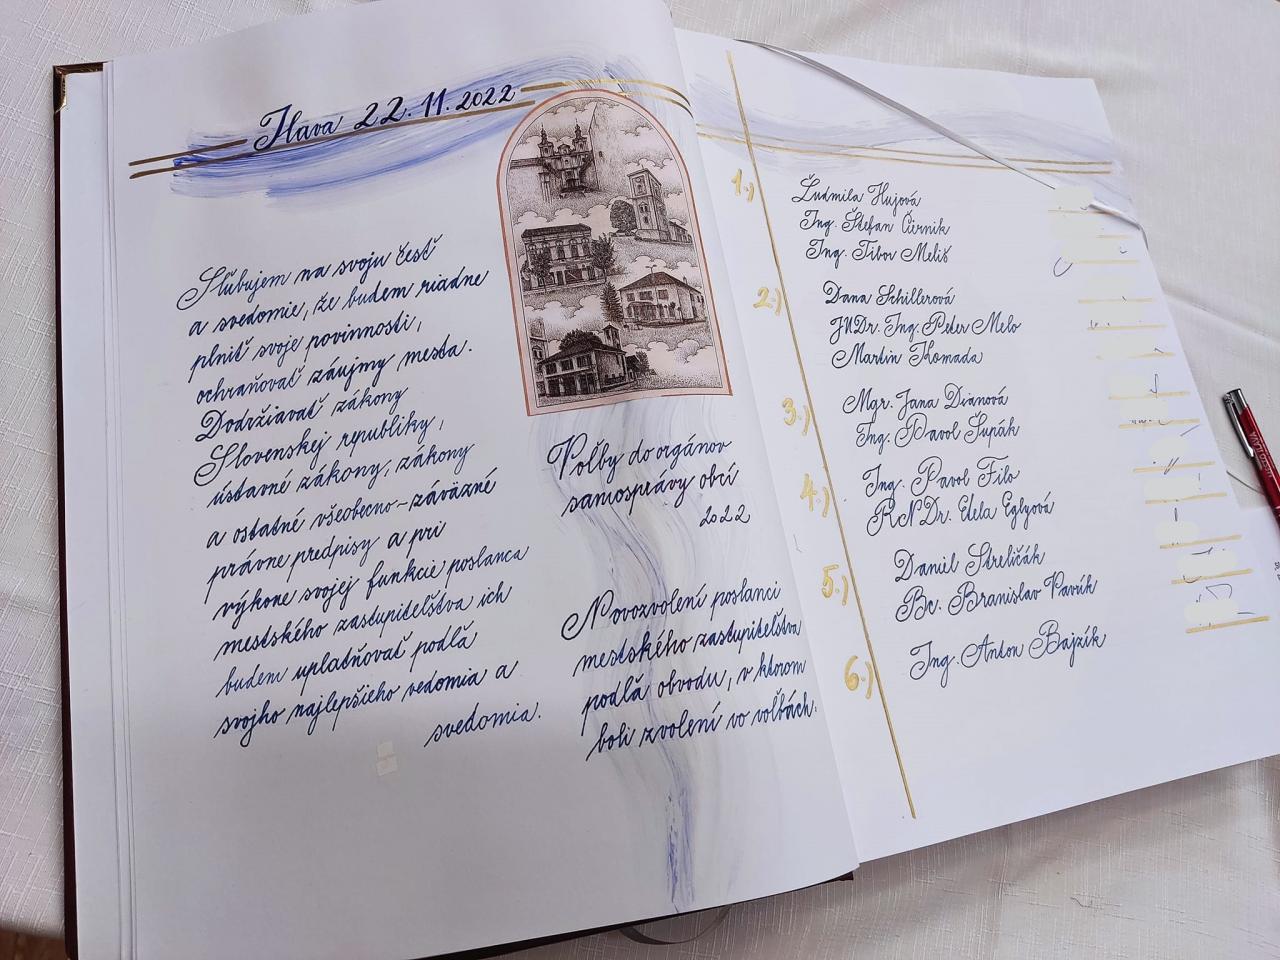 Ilava 22.11.2022
Sľubujem na svoju česť
a svedomie, že budem riadne
plniť svoje povinnosti,
ochraňovať záujmy mesta.
Dodržiavať zákony
Slovenskej republiky,
ústavné zákony, zákony
a ostatné všeobecno-záväzné
právne predpisy a pri
výkone svojej funkcie poslanca
mestského zastupiteľstva ich
budem uplatňovať podľa
svojho najlepšieho vedomia a
svedomia.
Voľby do orgánov
samosprávy obcí
2022
Novozvolení poslanci
mestského zastupiteľstva
podľa obvodu, v ktorom
boli zvolení vo voľbách.
1.) Ľudmila Hujová
Ing. Štefan Čiernik
Ing. Tibor Meliš
2.) Dana Schillerová
JUDr. Ing. Peter Melo
Martin Komada
3.) Mgr. Jana Dianová
Ing. Pavol Šupák
4.) Ing. Pavol Filo
RNDr. Etela Eglyová
5.) Daniel Streličák
Bc. Branislav Pavúk
6.) Ing. Anton Bajzík